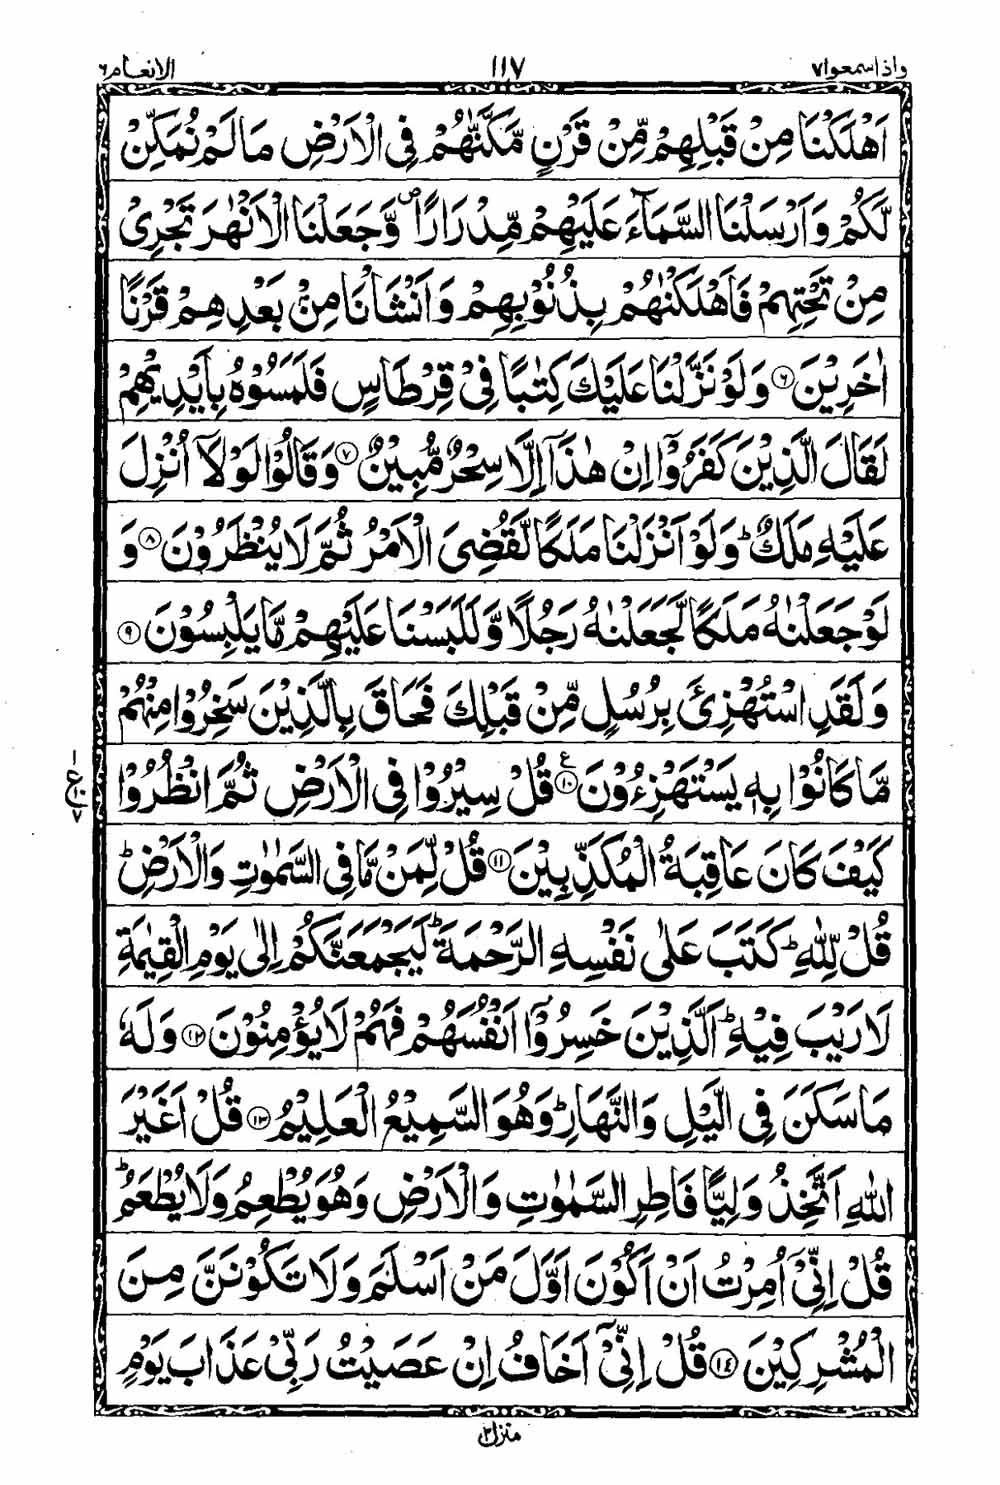 واذاسمعوا٧ ١١٧ الانعام٦
اَهْلَكْنَا مِنْ قَبْلِهِمْ مِّنْ قَرْنٍ مَّكَّنّٰهُمْ فِی الْاَرْضِ مَا لَمْ نُمَكِّنْ
لَّكُمْ وَاَرْسَلْنَا السَّمَآءَ عَلَيْهِمْ مِّدْرَارًا ۪ وَّجَعَلْنَا الْاَنْهٰرَ تَجْرِیْ
مِنْ تَحْتِهِمْ فَاَهْلَكْنٰهُمْ بِذُنُوْبِهِمْ وَاَنْشَاْنَا مِنْۢ بَعْدِهِمْ قَرْنًا
اٰخَرِيْنَ ۶ وَلَوْ نَزَّلْنَا عَلَيْكَ كِتٰبًا فِیْ قِرْطَاسٍ فَلَمَسُوْهُ بِاَيْدِيْهِمْ
لَقَالَ الَّذِيْنَ كَفَرُوْۤا اِنْ هٰذَاۤ اِلَّا سِحْرٌ مُّبِيْنٌ ۷ وَقَالُوْا لَوْلَاۤ اُنْزِلَ
عَلَيْهِ مَلَكٌ ؕ وَلَوْ اَنْزَلْنَا مَلَكًا لَّقُضِیَ الْاَمْرُ ثُمَّ لَا يُنْظَرُوْنَ ۸ وَ
لَوْ جَعَلْنٰهُ مَلَكًا لَّجَعَلْنٰهُ رَجُلًا وَّلَلَبَسْنَا عَلَيْهِمْ مَّا يَلْبِسُوْنَ ۹
وَلَقَدِ اسْتُهْزِئَ بِرُسُلٍ مِّنْ قَبْلِكَ فَحَاقَ بِالَّذِيْنَ سَخِرُوْا مِنْهُمْ
مَّا كَانُوْا بِهٖ يَسْتَهْزِءُوْنَ ۱۰ ع قُلْ سِيْرُوْا فِی الْاَرْضِ ثُمَّ انْظُرُوْا
كَيْفَ كَانَ عَاقِبَةُ الْمُكَذِّبِيْنَ ۱۱ قُلْ لِّمَنْ مَّا فِی السَّمٰوٰتِ وَالْاَرْضِ ؕ
قُلْ لِّلّٰهِ ؕ كَتَبَ عَلٰی نَفْسِهِ الرَّحْمَةَ ؕ لَيَجْمَعَنَّكُمْ اِلٰی يَوْمِ الْقِيٰمَةِ
لَا رَيْبَ فِيْهِ ؕ اَلَّذِيْنَ خَسِرُوْۤا اَنْفُسَهُمْ فَهُمْ لَا يُؤْمِنُوْنَ ۱۲ وَلَهٗ
مَا سَكَنَ فِی الَّيْلِ وَالنَّهَارِ ؕ وَهُوَ السَّمِيْعُ الْعَلِيْمُ ۱۳ قُلْ اَغَيْرَ
اللّٰهِ اَتَّخِذُ وَلِيًّا فَاطِرِ السَّمٰوٰتِ وَالْاَرْضِ وَهُوَ يُطْعِمُ وَلَا يُطْعَمُ ؕ
قُلْ اِنِّیْۤ اُمِرْتُ اَنْ اَكُوْنَ اَوَّلَ مَنْ اَسْلَمَ وَلَا تَكُوْنَنَّ مِنَ
الْمُشْرِكِيْنَ ۱۴ قُلْ اِنِّیْۤ اَخَافُ اِنْ عَصَيْتُ رَبِّیْ عَذَابَ يَوْمٍ
منزل۲